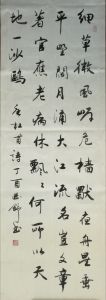 細草微風岸危檣獨夜舟星垂
平野闊月涌大江流名豈文章
著官應老病休飄飄何所似天
地一沙鷗 杜甫詩丁酉